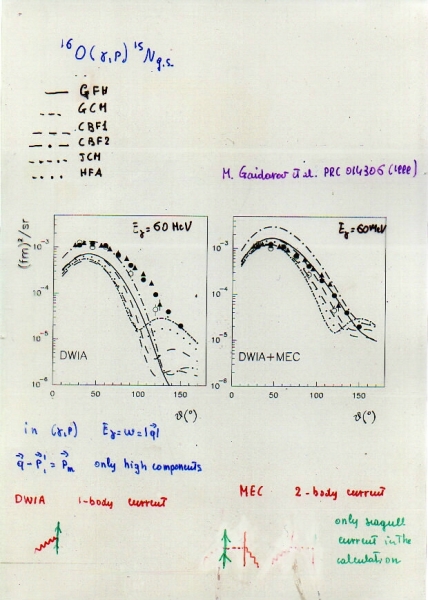 ¹⁶O(γ,p)¹⁵N g.s.
GFH
GCM
CBF1
CBF2
JCM
HFA
M. Gaidarov et al. PRC 014306 (1999)
Eγ = 60 MeV
Eγ = 60 MeV
(fm)²/sr
10⁻³
10⁻⁴
10⁻⁵
10⁻⁶
DWIA
0 50 100 150
ϑ(°)
10⁻³
10⁻⁴
10⁻⁵
10⁻⁶
DWIA+MEC
0 50 100 150
ϑ(°)
in (γ,p) Eγ = ω = |q⃗|
q⃗ - p⃗₁' = p⃗ₘ only high components
DWIA 1-body current
MEC 2-body current
only seagull
current in the
calculation